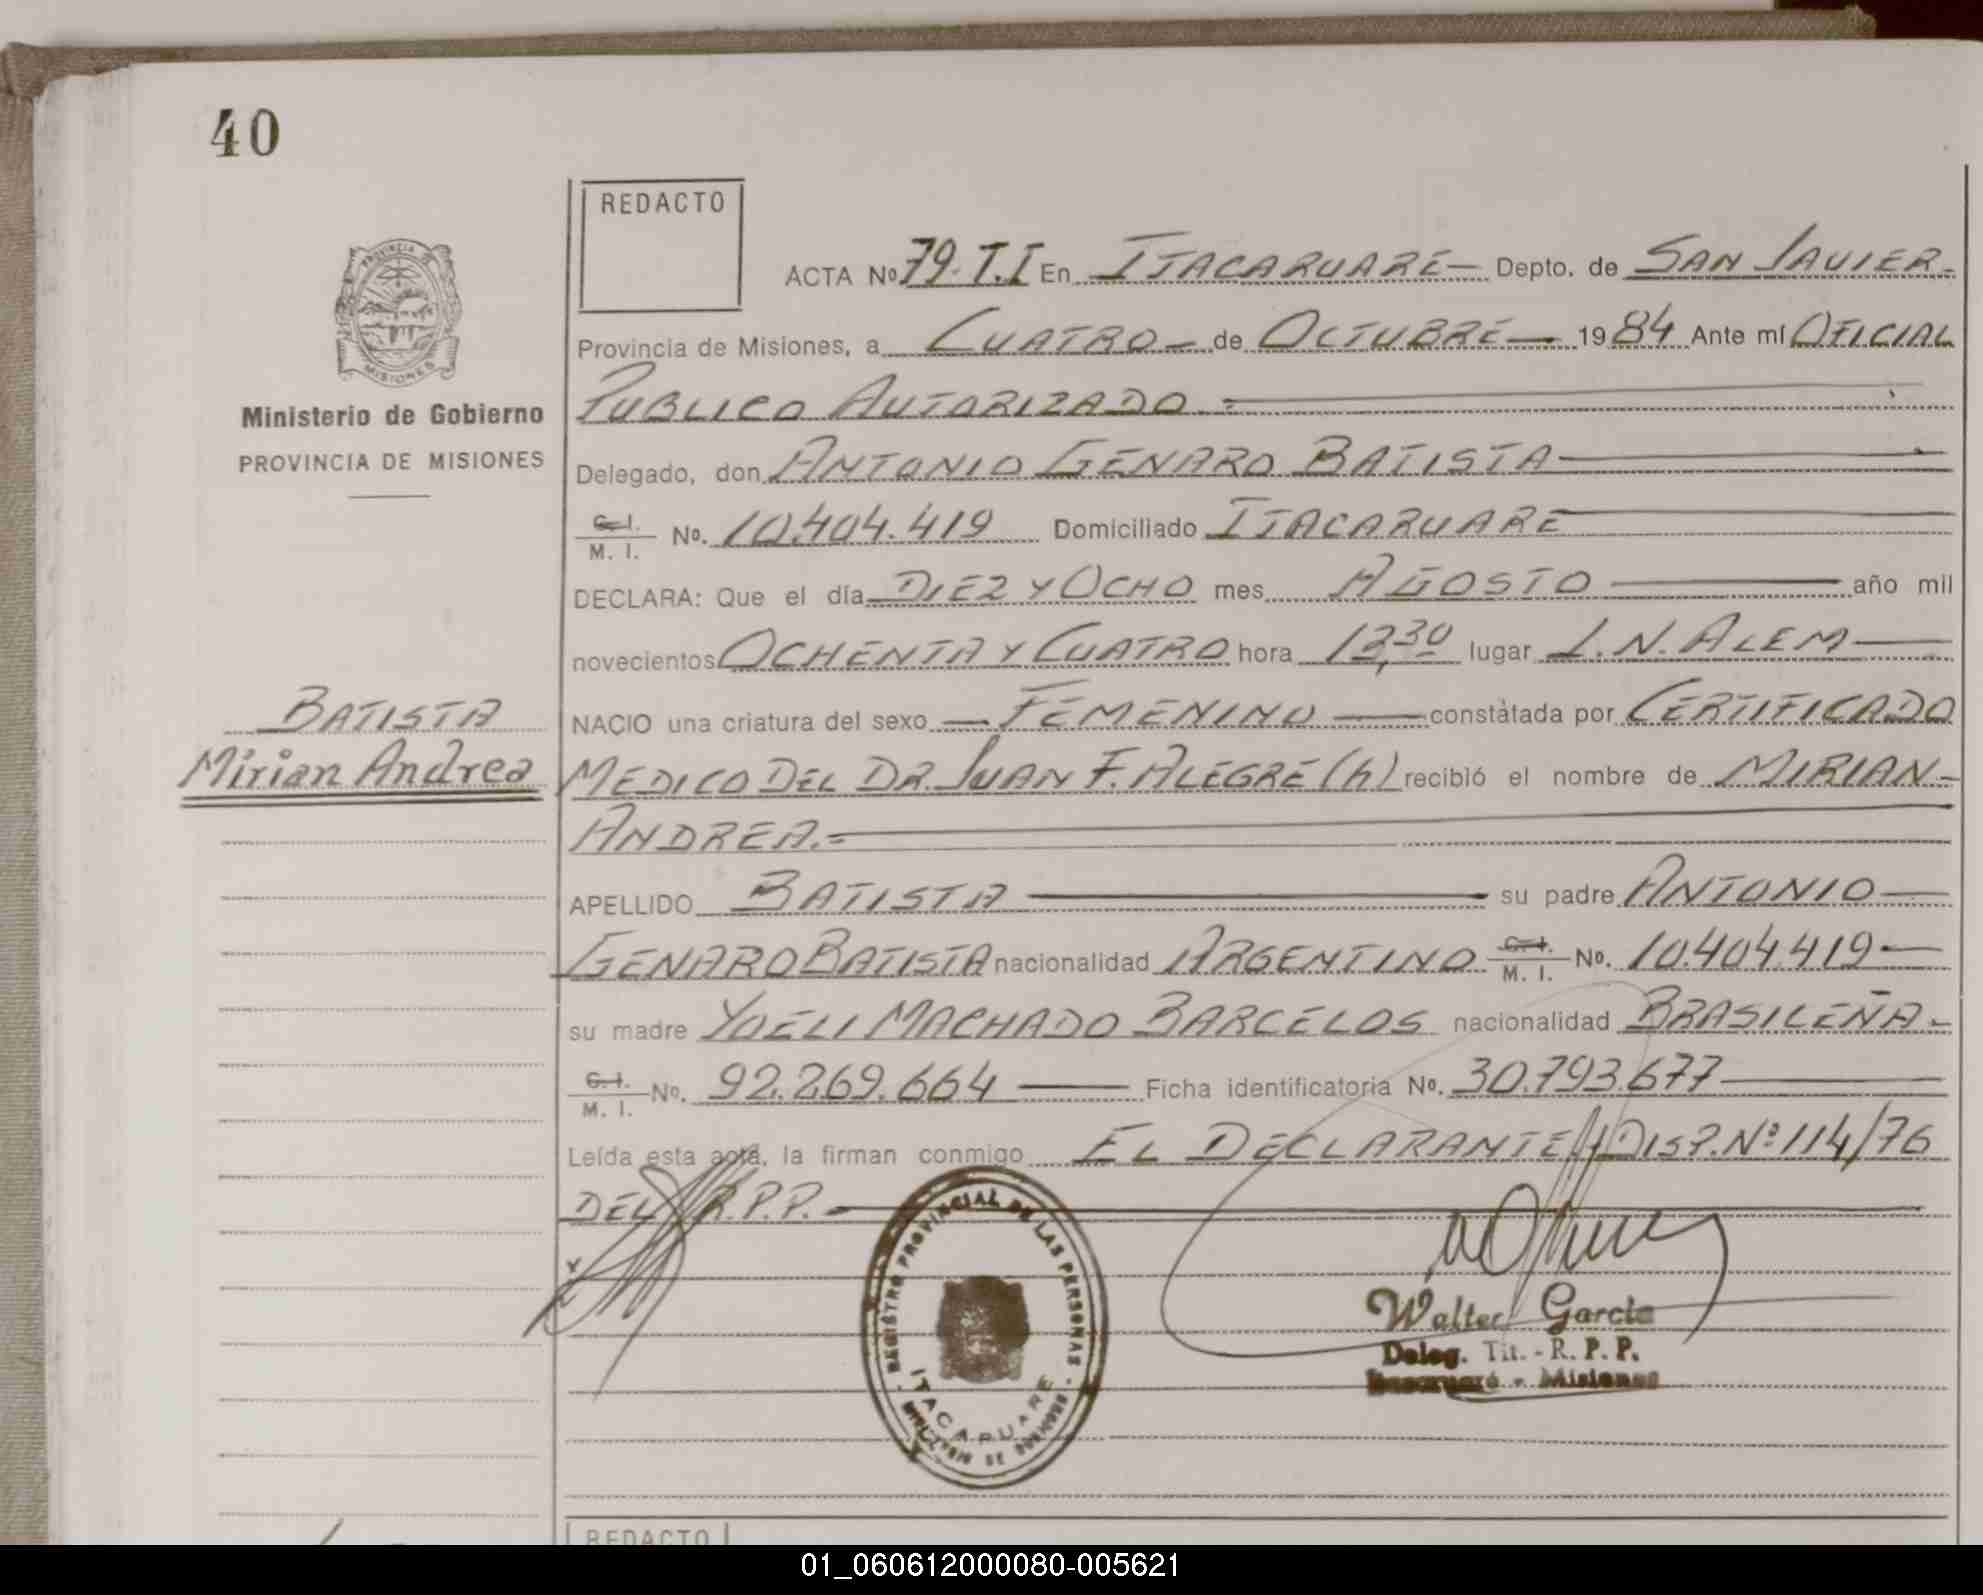 40
REDACTO
ACTA No 79. T.I En ITACARUARE- Depto. de SAN JAVIER.-
PROVINCIA
MISIONES
Provincia de Misiones, a CUATRO - de OCTUBRE - 1984 Ante mí OFICIAL
Ministerio de Gobierno
PUBLICO AUTORIZADO.=
PROVINCIA DE MISIONES
Delegado, don ANTONIO GENARO BATISTA
C. I. / M. I. No. 10.404.419 Domiciliado ITACARUARE
DECLARA: Que el día DIEZ Y OCHO mes AGOSTO año mil
novecientos OCHENTA Y CUATRO hora 13,30 lugar L.N. ALEM
BATISTA
NACIO una criatura del sexo - FEMENINO - constàtada por CERTIFICADO
Mirian Andrea
MEDICO DEL DR. JUAN F. ALEGRE (h) recibió el nombre de MIRIAN-
ANDREA.=
APELLIDO BATISTA su padre ANTONIO
GENARO BATISTA nacionalidad ARGENTINO C. I. / M. I. No. 10.404.419-
su madre YOELI MACHADO BARCELOS nacionalidad BRASILEÑA.-
C. I. / M. I. No. 92.269.664 Ficha identificatoria No. 30.793.677
Leída esta acta, la firman conmigo EL DECLARANTE DISP. Nº 114/76
DEL R.P.P.-
REGISTRO PROVINCIAL DE LAS PERSONAS
ITACARUARE
Walter Garcia
Deleg. Tit. - R. P. P.
Itacaruaré - Misiones
REDACTO
01_060612000080-005621